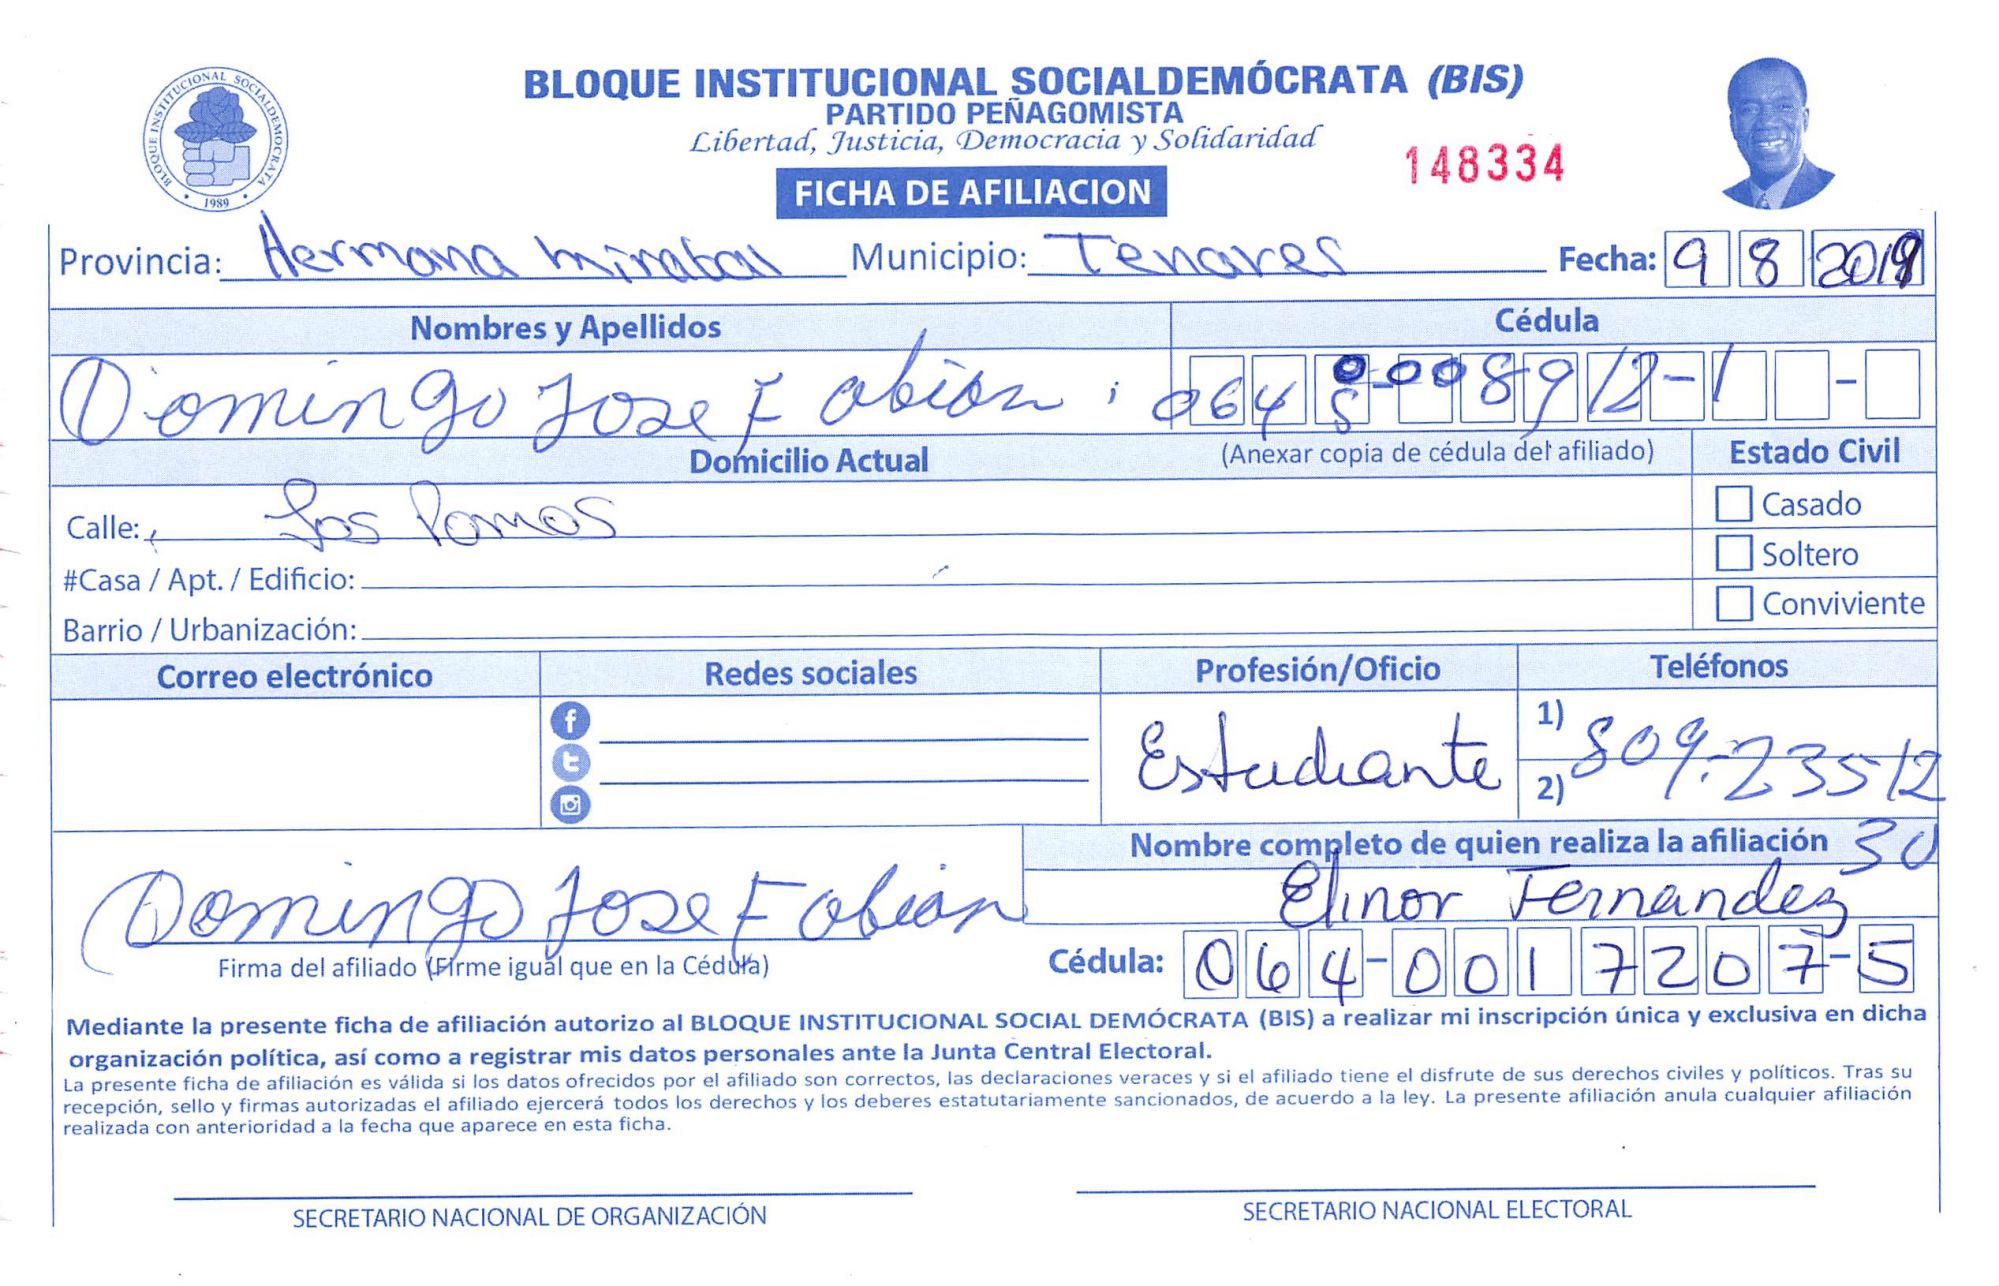 BLOQUE INSTITUCIONAL SOCIALDEMOCRATA
1989
BLOQUE INSTITUCIONAL SOCIALDEMÓCRATA (BIS)
PARTIDO PEÑAGOMISTA
Libertad, Justicia, Democracia y Solidaridad
148334
FICHA DE AFILIACION
Provincia: Hermana Mirabal Municipio: Tenares Fecha: 9 8 2019
Nombres y Apellidos Cédula
Domingo Jose Fabian
(Anexar copia de cédula del afiliado)
Domicilio Actual Estado Civil
Calle: Los Pomos Casado
#Casa / Apt. / Edificio: Soltero
Barrio / Urbanización: Conviviente
Correo electrónico Redes sociales Profesión/Oficio Teléfonos
Estudiante 1) 809-23512
2)
Nombre completo de quien realiza la afiliación 30
Elinor Fernandez
Domingo Jose Fabian
Firma del afiliado (Firme igual que en la Cédula) Cédula: 064-0017207-5
Mediante la presente ficha de afiliación autorizo al BLOQUE INSTITUCIONAL SOCIAL DEMÓCRATA (BIS) a realizar mi inscripción única y exclusiva en dicha
organización política, así como a registrar mis datos personales ante la Junta Central Electoral.
La presente ficha de afiliación es válida si los datos ofrecidos por el afiliado son correctos, las declaraciones veraces y si el afiliado tiene el disfrute de sus derechos civiles y políticos. Tras su
recepción, sello y firmas autorizadas el afiliado ejercerá todos los derechos y los deberes estatutariamente sancionados, de acuerdo a la ley. La presente afiliación anula cualquier afiliación
realizada con anterioridad a la fecha que aparece en esta ficha.
SECRETARIO NACIONAL DE ORGANIZACIÓN SECRETARIO NACIONAL ELECTORAL